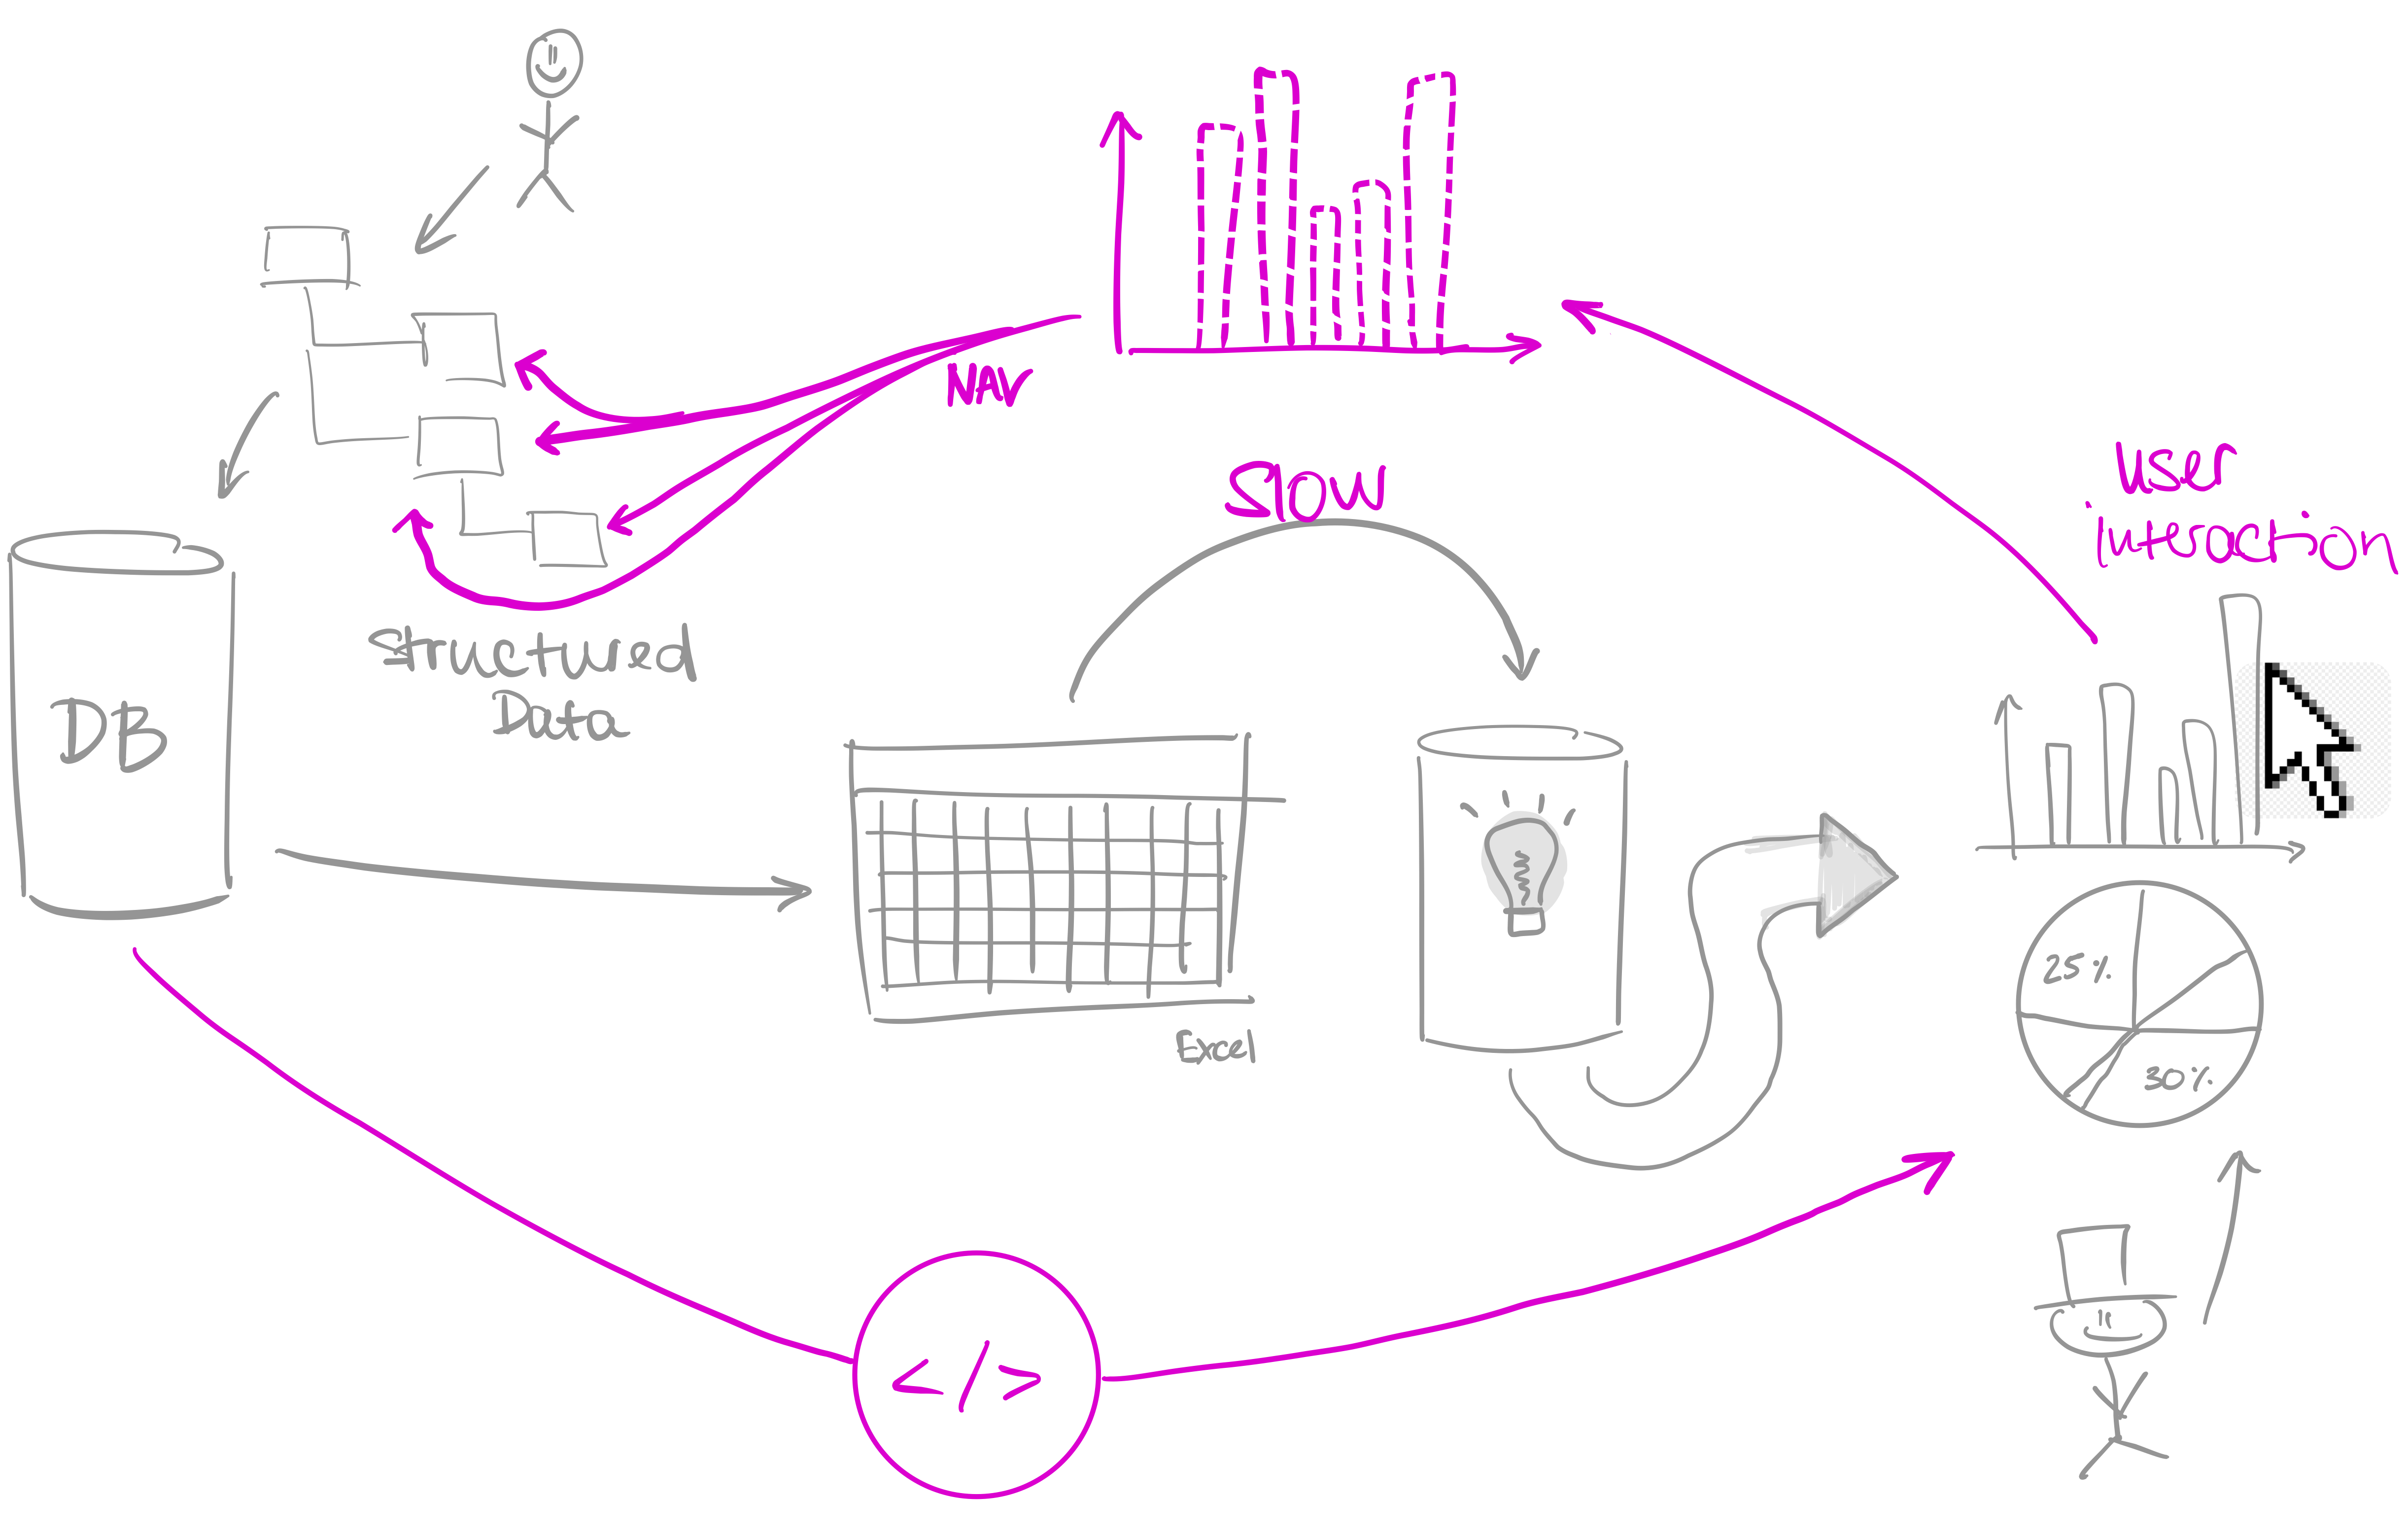 NAV
SLOW
User
interaction
Structured
Data
DB
Excel
25%
30%
</>